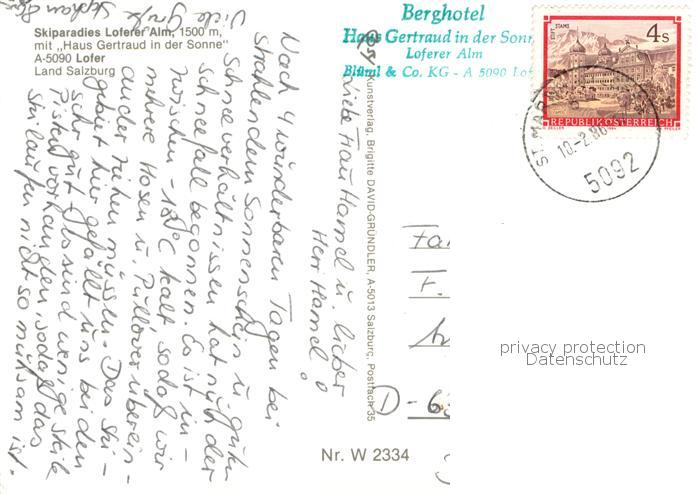 Skiparadies Loferer Alm, 1500 m,
mit „Haus Gertraud in der Sonne"
A-5090 Lofer
Land Salzburg
Berghotel
Haus Gertraud in der Sonn
Loferer Alm
Blüml & Co. KG - A 5090 Lof
STIFT STAMS
4s
REPUBLIK ÖSTERREICH
ST. MAR
10.-2.86
5092
Kunstverlag, Brigitte DAVID-GRÜNDLER, A-5013 Salzburg, Postfach 35
Liebe Frau Hamel u. lieber
Herr Hamel!
Nach 4 wunderbaren Tagen bei
strahlendem Sonnenschein u. guten
Schneeverhältnissen hat nun der
Schneefall begonnen. Es ist in-
zwischen -18°C kalt sodaß wir
mehrere Hosen u. Pullover überein-
ander ziehen müssen. Das Ski-
gebiet hier gefällt uns bei den
sehr gut. Es sind wenige steile
Pisten vorhanden, sodaß das
Skilaufen nicht so mühsam ist.
Viele Grüße
D-6
Nr. W 2334
privacy protection
Datenschutz